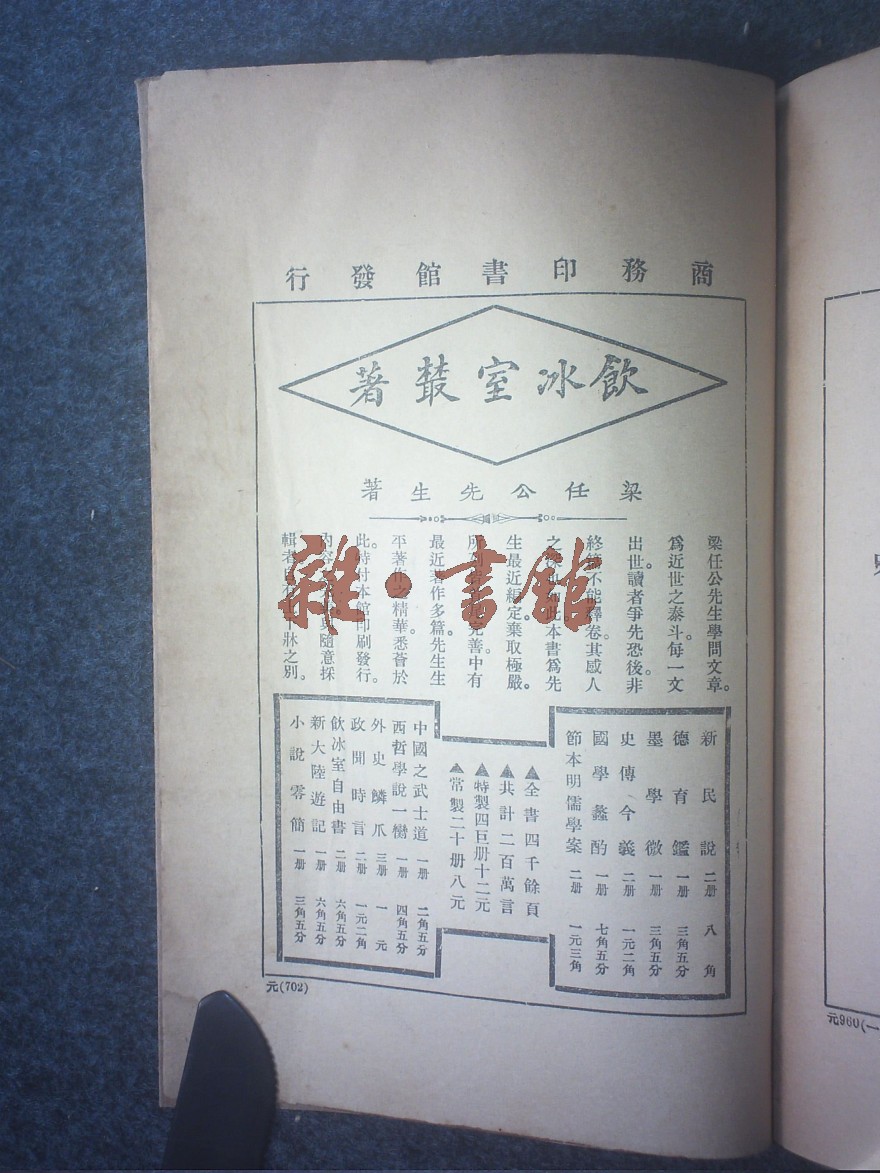 商務印書館發行
飲冰室叢著
梁任公先生著
梁任公先生學問文章。
爲近世之泰斗每一文
出世。讀者爭先恐後。非
終篇不能釋卷。其感人
之深如此本書爲先
生最近編定。棄取極嚴。
所列完善中有
最近著作多篇。先生生
平著作之精華悉薈於
此。時付本館印刷發行。
内容隨意採
輯者牀之別。
新民說 二册 八角
德育鑑 一册 三角五分
墨學微 一册 三角五分
史傳今義 二册 一元二角
國學蠡酌 一册 七角五分
節本明儒學案 二册 一元三角
▲全書四千餘頁
▲共計二百萬言
▲特製四巨册十二元
▲常製二十册八元
中國之武士道 一册 二角五分
西哲學說一臠 一册 四角五分
外史鱗爪 三册 一元
政聞時言 二册 一元二角
飲冰室自由書 二册 六角五分
新大陸遊記 一册 六角五分
小說零簡 一册 三角五分
元(702)
元960(一
雜·書館